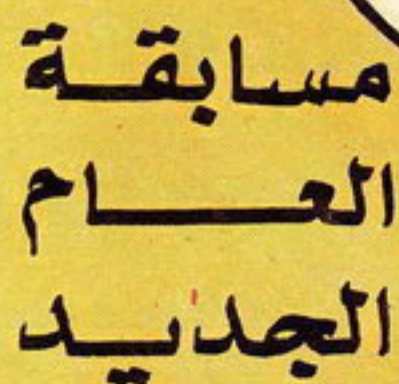 مسابقة
العام
الجديد